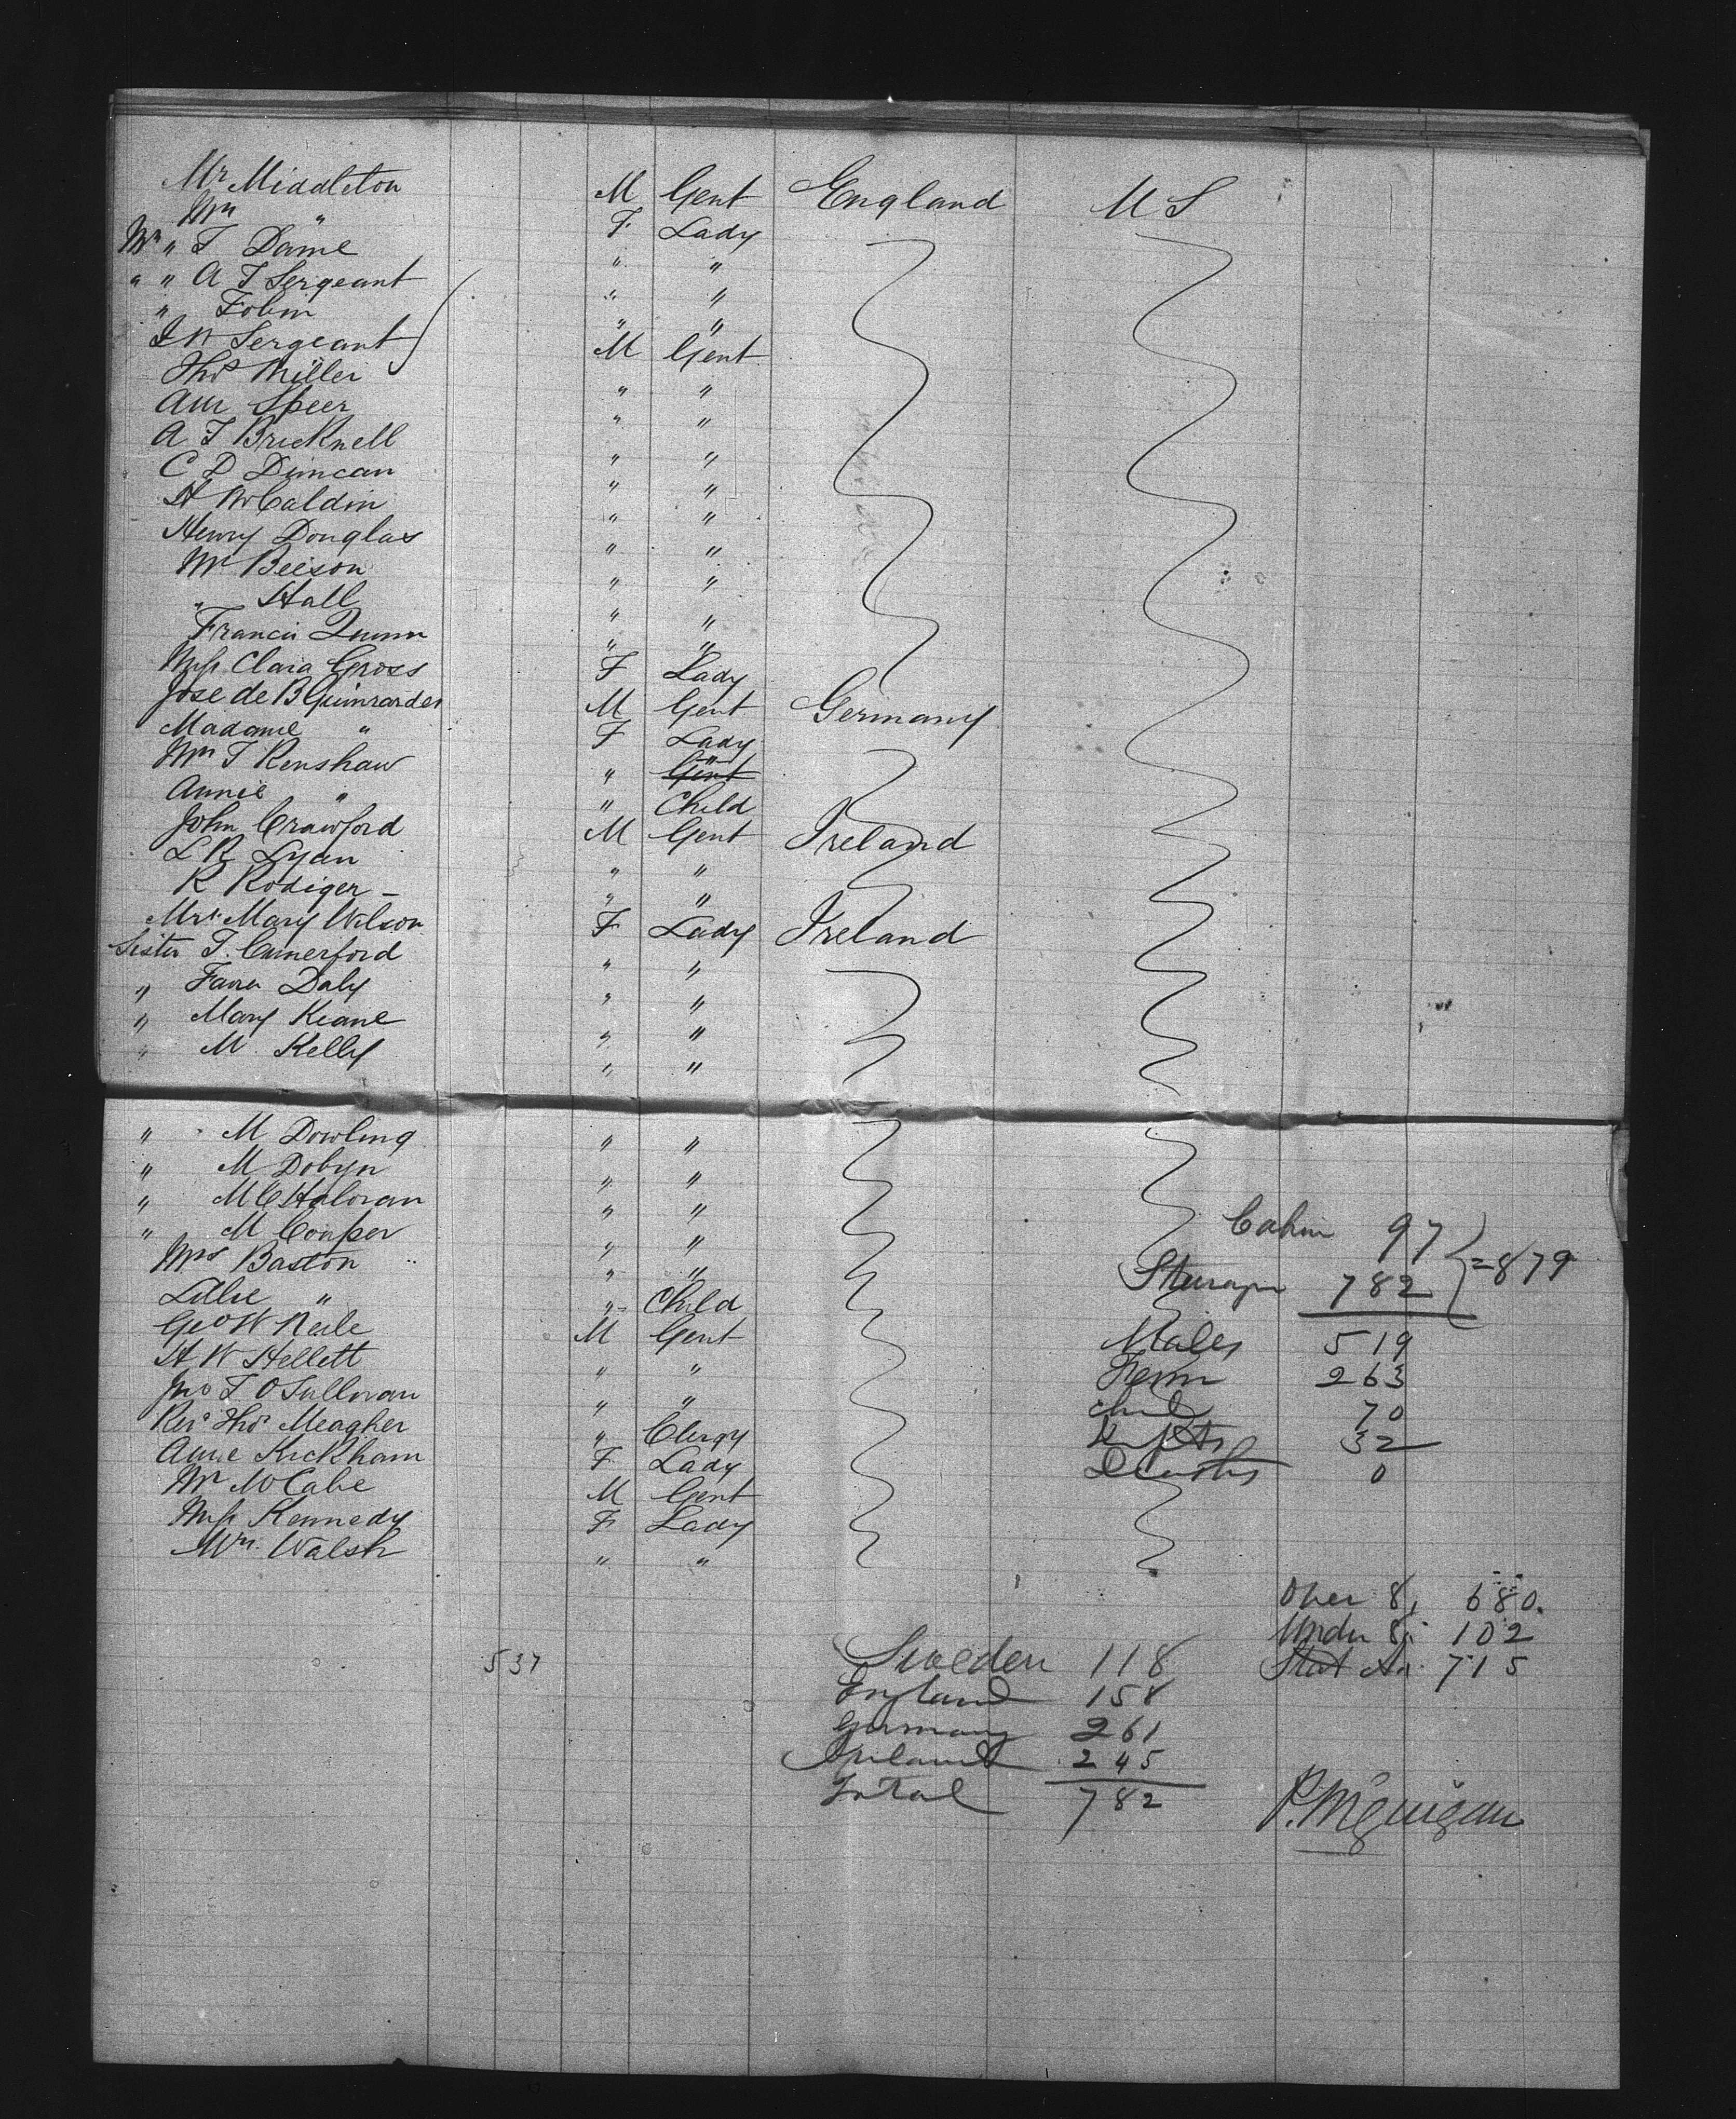 Mr Middleton M Gent England U S
Mrs " F Lady
Mrs " T Dame " "
" " A T Sergeant " "
" Tobin " "
J W Sergeant M Gent
Thos Miller " "
Speer " "
A T Bricknell " "
C D Duncan " "
H McCaldin " "
Henry Douglas " "
Mr Beeson " "
" Hall " "
Francis Quinn " "
Miss Clara Gross F Lady
Jose de B Guimrardes M Gent Germany
Madame " F Lady
Mrs T Renshaw " "
Annie " " Child
John Crawford M Gent Ireland
L R Lyan " "
R Rodiger - " "
Mrs Mary Wilson F Lady Ireland
Sister T. Cumerford " "
" Daly " "
" Mary Keane " "
" M. Kelly " "
" M Dowling " "
" M Dobyn " "
" M C Haloran " "
" M Couper " "
Cabin 97
Mrs Baston " "
Steerage 782 } = 879
Lillie " " Child
Geo W Neile M Gent
Males 519
H W Hellett " "
Fem 263
Jno T O Sullivan " "
Chil 70
Revd Thos Meagher " Clergy
Infts 32
Anne Kickham F Lady
Deaths 0
Mr McCabe M Gent
Miss Kennedy F Lady
Mrs. Walsh " "
Over 8, 680.
Under 8, 102
Stat Ad. 715
537
Sweden 118
England 158
Germany 261
Ireland 245
Total 782
P. McGuigan